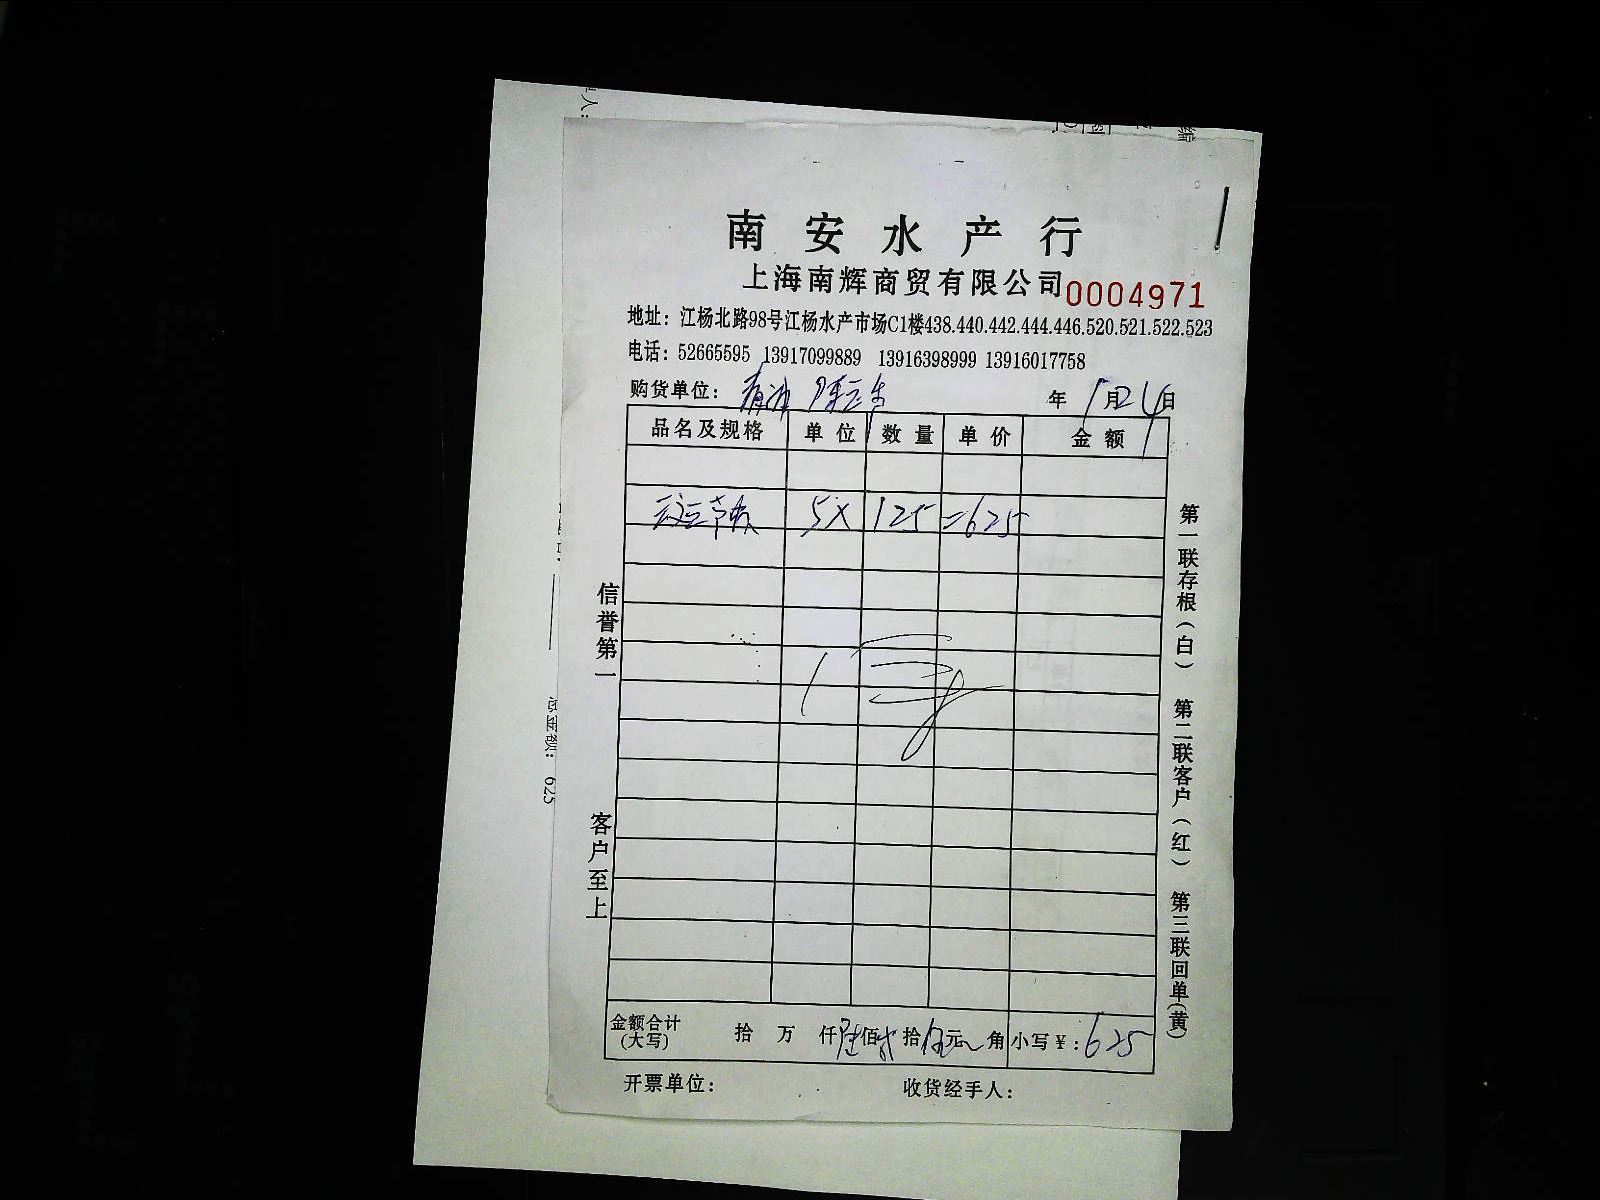 南安水产行
上海南辉商贸有限公司 0004971
地址：江杨北路98号江杨水产市场C1楼438.440.442.444.446.520.521.522.523
电话：52665595 13917099889 13916398999 13916017758
购货单位： 年 1月24日
品名及规格 单位 数量 单价 金额
5X 125 =625
信誉第一
客户至上
第一联存根（白） 第二联客户（红） 第三联回单（黄）
金额合计（大写） 拾 万 仟陆佰贰拾伍元 角 小写￥：625
开票单位： 收货经手人：
总金额： 625